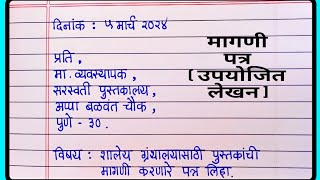 दिनांक : ५ मार्च २०२४
प्रति,
मा. व्यवस्थापक,
सरस्वती पुस्तकालय,
अप्पा बळवंत चौक,
पुणे - ३०.
विषय : शालेय ग्रंथालयासाठी पुस्तकांची
मागणी करणारे पत्र लिहा.
मागणी
पत्र
[ उपयोजित
लेखन ]